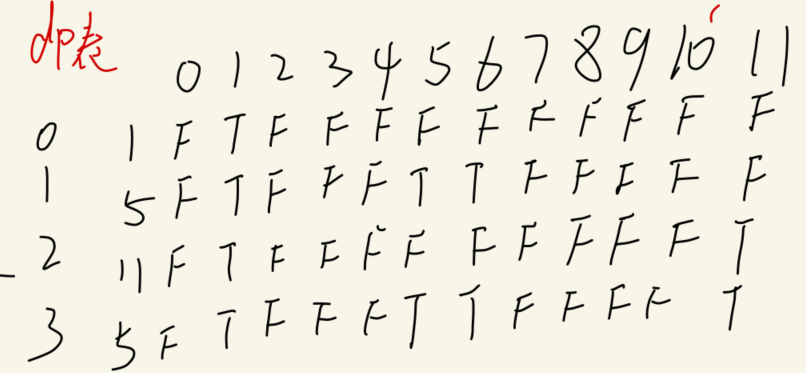 dp表
0 1 2 3 4 5 6 7 8 9 10 11
0 1 F T F F F F F F F F F F
1 5 F T F F F T T F F F F F
2 11 F T F F F F F F F F F T
3 5 F T F F F T T F F F F T